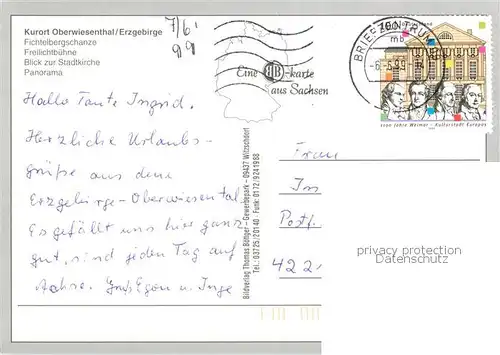 Kurort Oberwiesenthal/Erzgebirge
Fichtelbergschanze
Freilichtbühne
Blick zur Stadtkirche
Panorama
7/6.
99
Eine BTB-karte
aus Sachsen
BRIEFZENTRUM
mb
-6.-6.99
100 Deutschland
1100 Jahre Weimar - Kulturstadt Europas
Hallo Tante Ingrid.
Herzliche Urlaubs-
grüße aus dem
Erzgebirge-Oberwiesental
Es gefällt uns hier ganz
gut, sind jeden Tag auf
Achse. Gruß Egon u. Inge
Bildverlag Thomas Böttger - Gewerbepark - 09437 Witzschdorf
Tel.: 03725/20140 - Funk: 0172/9241988
Frau
In
Postf.
422
privacy protection
Datenschutz